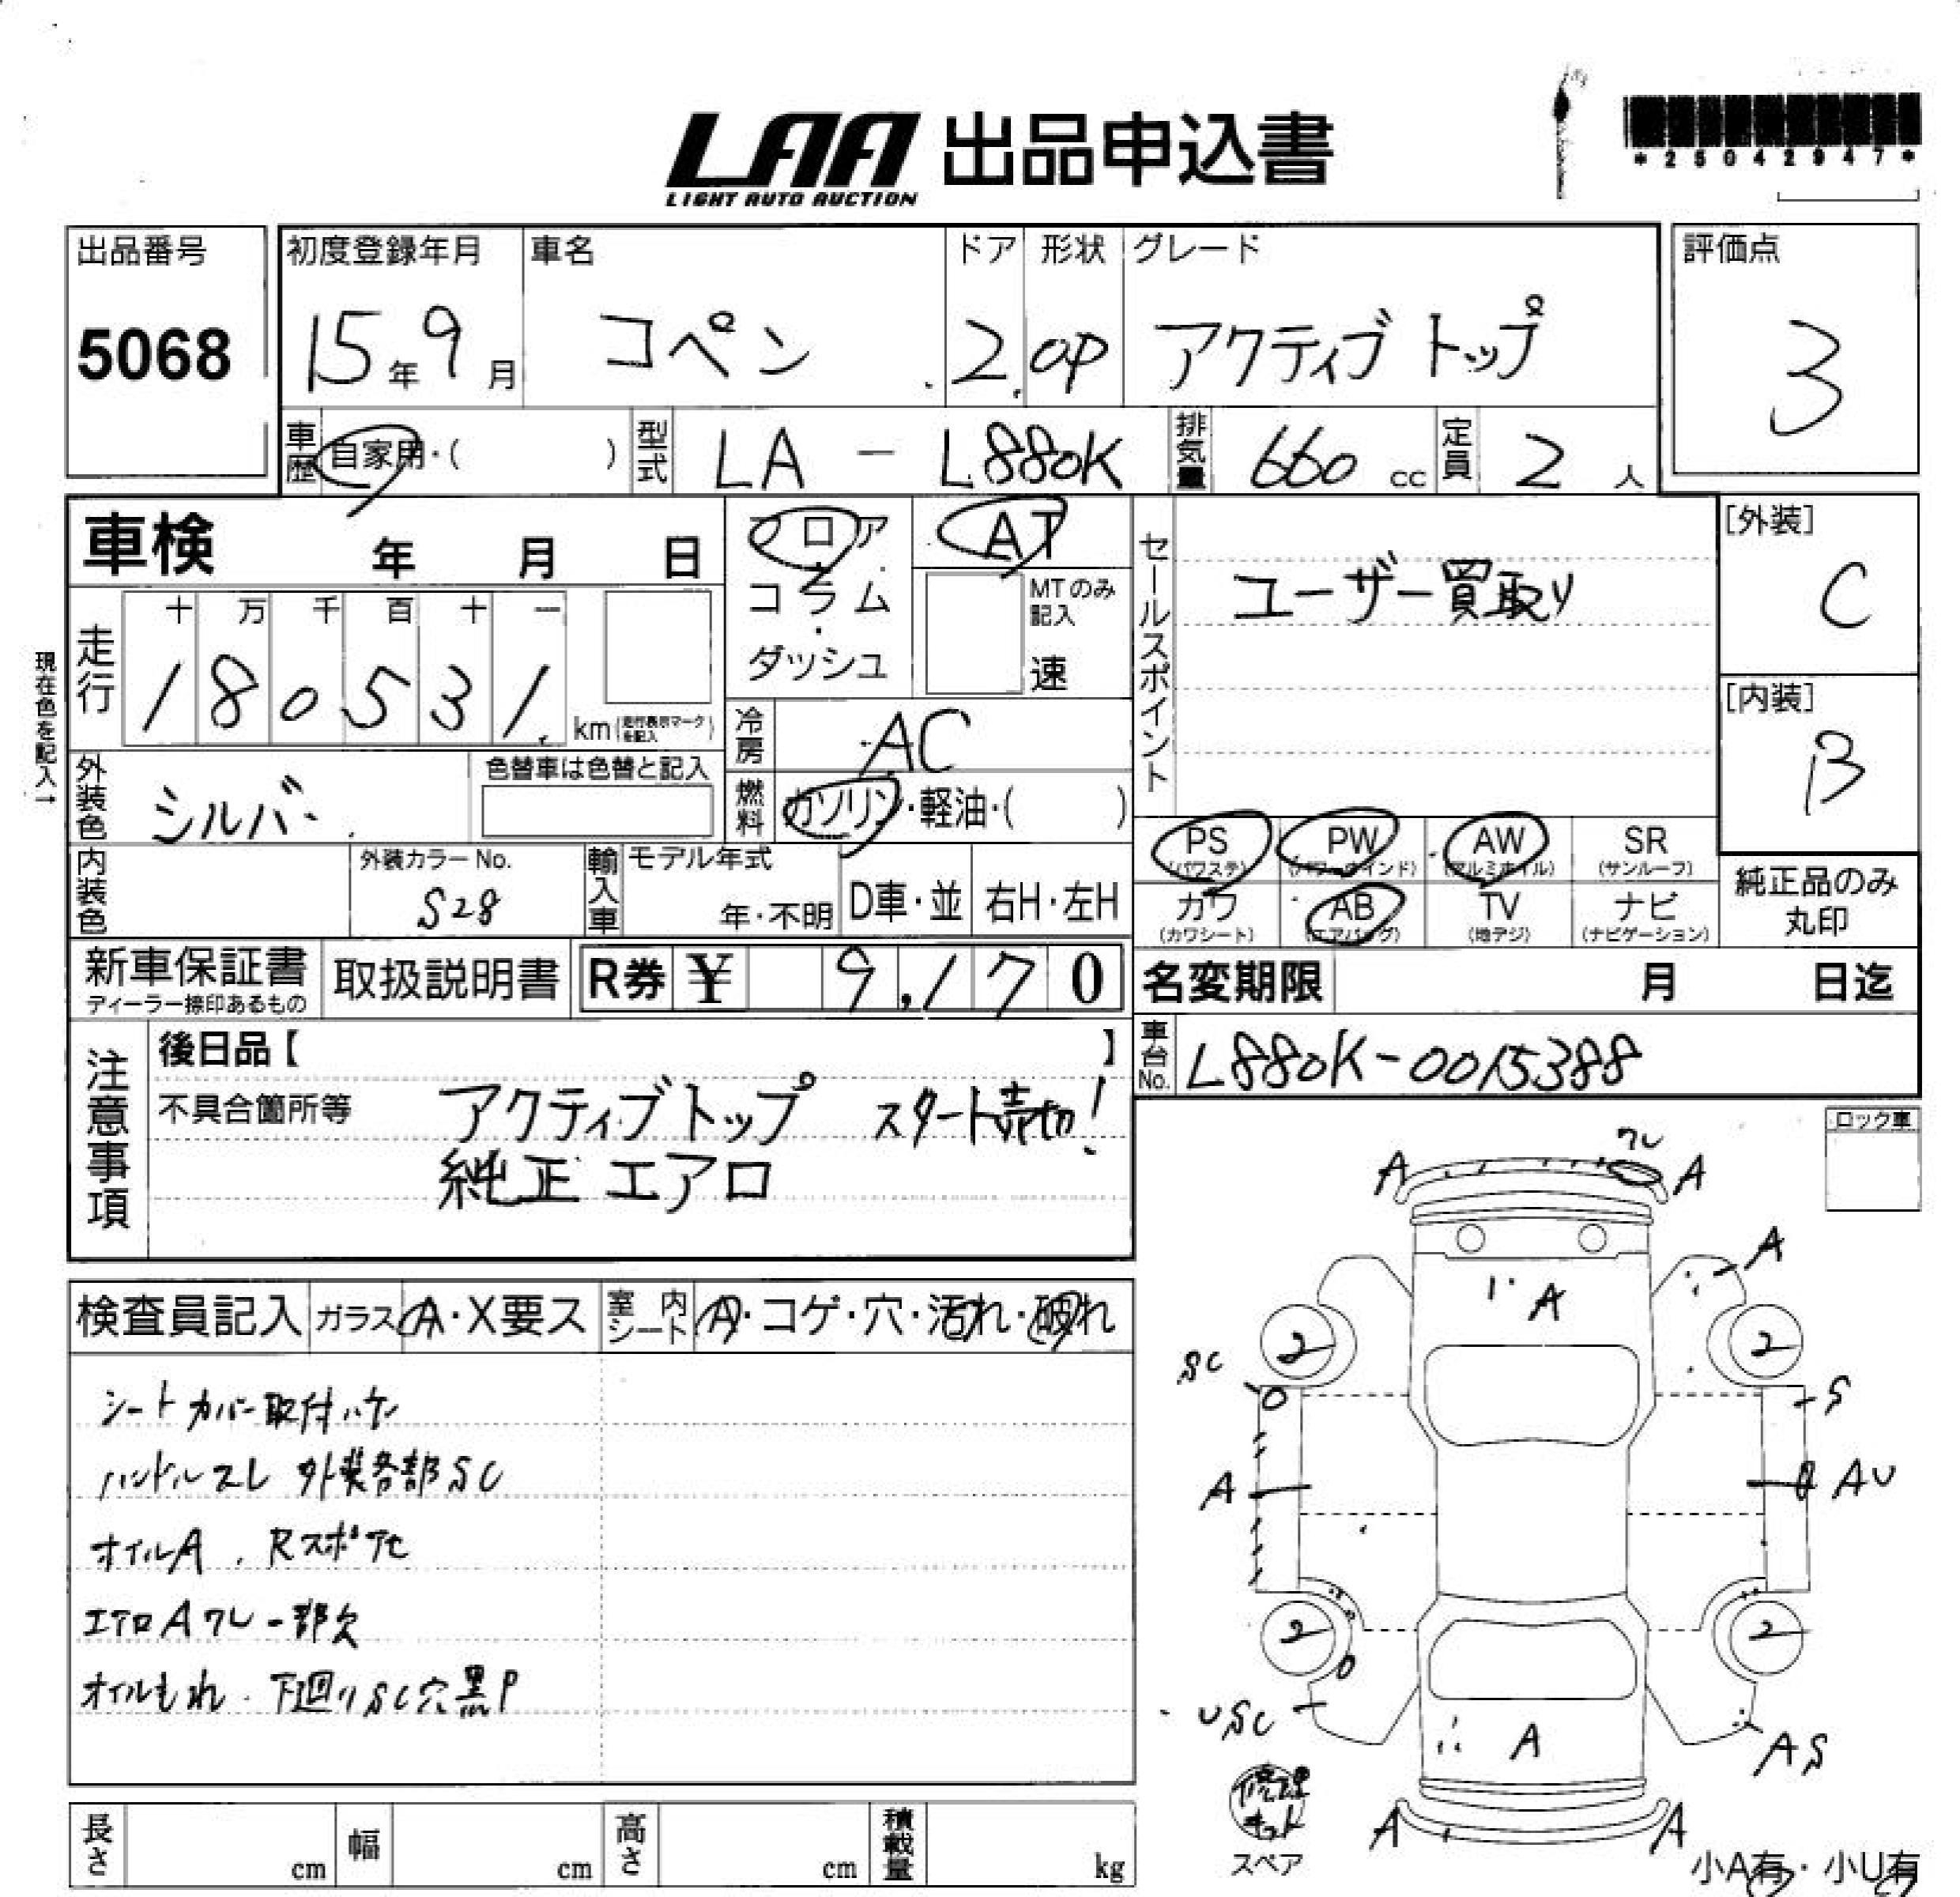 LAA 出品申込書
LIGHT AUTO AUCTION
*25042947*
出品番号
5068
初度登録年月
15年9月
車名
コペン
ドア
2
形状
OP
グレード
アクティブトップ
評価点
3
車歴 自家用・( )
型式 LA - L880K
排気量 660 cc
定員 2 人
車検 年 月 日
フロア
コラム
・
ダッシュ
AT
MTのみ記入
速
現在色を記入→
走行
十 万 千 百 十 一
1 8 0 5 3 1
km (走行表示マークを記入)
冷房 AC
燃料 ガソリン・軽油・( )
外装色 シルバー
色替車は色替と記入
内装色
外装カラーNo.
S28
輸入車
モデル年式
年・不明
D車・並
右H・左H
セールスポイント
ユーザー買取り
[外装]
C
[内装]
B
PS (パワステ)
PW (パワーウインド)
AW (アルミホイル)
SR (サンルーフ)
カワ (カワシート)
AB (エアバッグ)
TV (地デジ)
ナビ (ナビゲーション)
純正品のみ
丸印
新車保証書
ディーラー捺印あるもの
取扱説明書
R券 ¥ 9,170
名変期限 月 日迄
車台No. L880K-0015388
注意事項
後日品【 】
不具合箇所等
アクティブトップ スタート売切!
純正エアロ
ロック車
検査員記入
ガラス A・X要ス
室内シート A・コゲ・穴・汚れ・破れ
シートカバー取付ハケン
ハンドルスレ 外装各部SC
オイルA . Rスポアセ
エアロAワレ一部欠
オイルもれ. 下廻りSC穴黒P
A ワレ A
A
A
2 2
SC
S
A
AU
2 2
USC
A
AS
A A
修理キット
スペア
小A有・小U有
長さ cm
幅 cm
高さ cm
積載量 kg